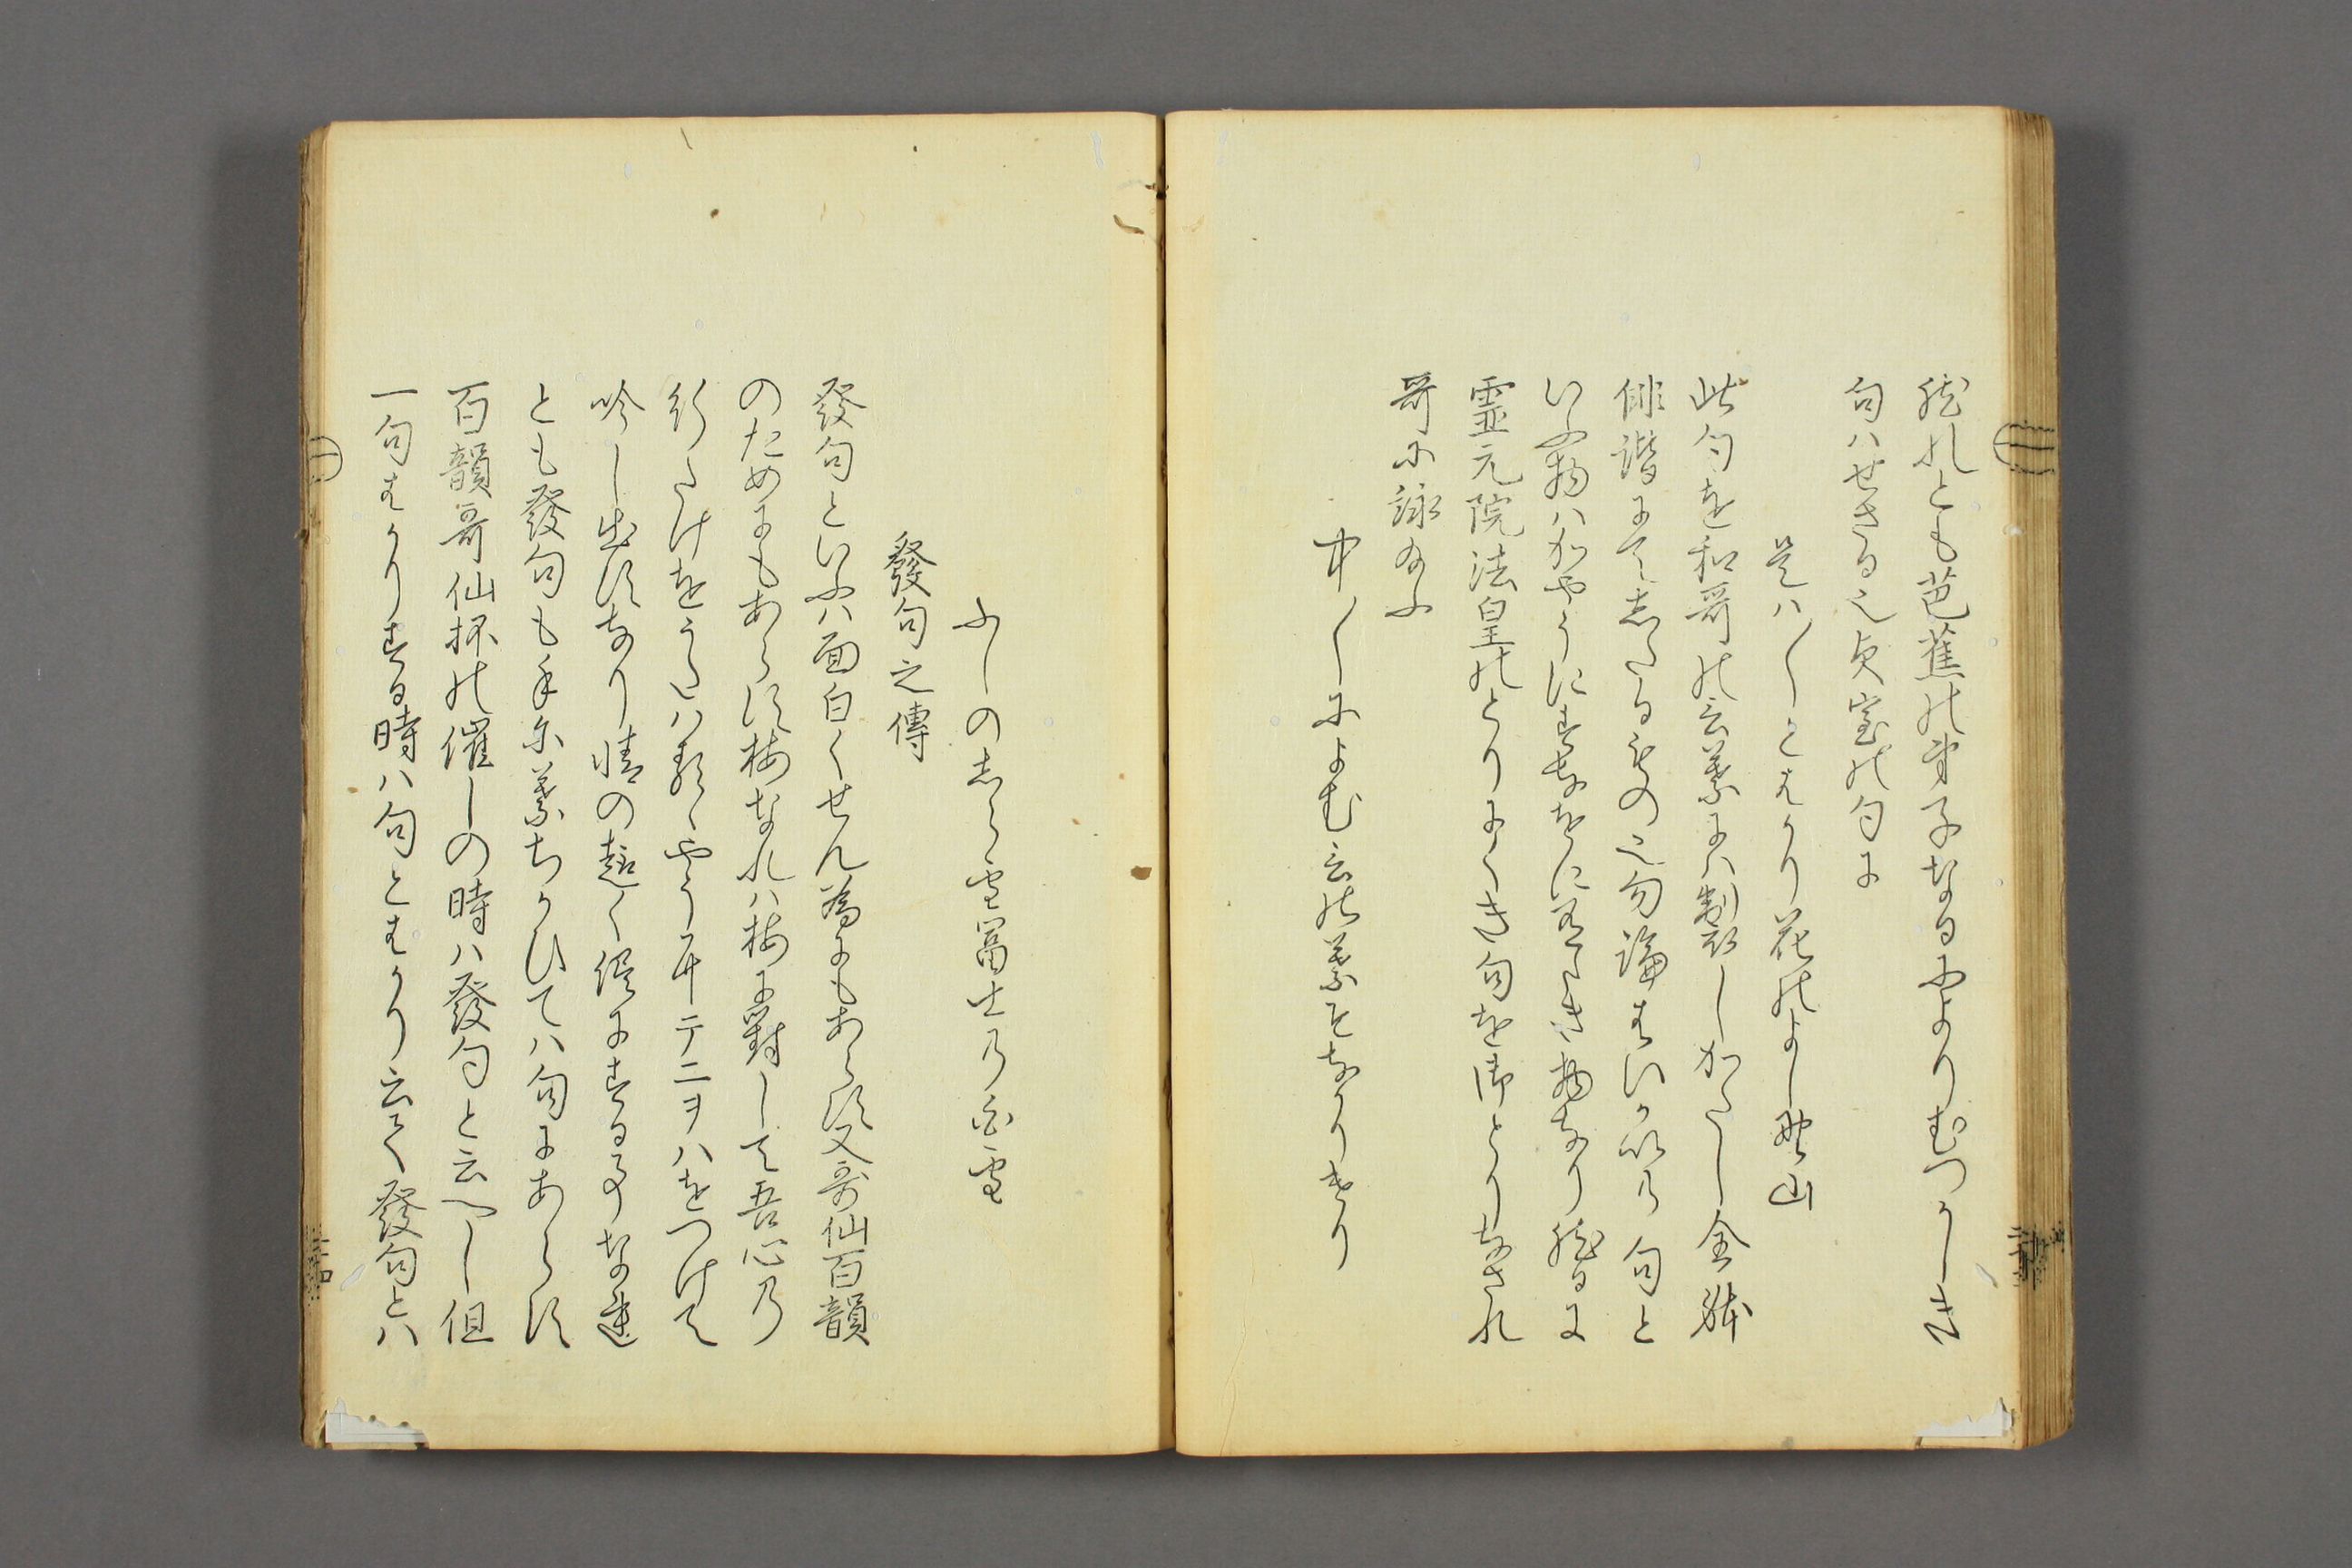 然れとも芭蕉の弟子なるによりむつかしき
句ハせさる也貞室の句に
是ハ〳〵とはかり花のよし野山
此句を和哥の言葉にハ製しかたし全躰
俳諧にてしたるもの也勿論はいかいの句と
いふ物ハかやうにすなをに有へき物なり然るに
霊元院法皇のとりにくき句を御とりなされ
哥に詠給ふ
中〳〵によむ言の葉もなかりけり
ふしのしら雪冨士の白雪
發句之傳
發句といふハ面白くせん為にもあらす又哥仙百韻
のためにもあらす梅なれハ梅に對して吾心の
行たけをうたハ
吟し出すなり情の趣く侭にする事な連
とも發句も手尓葉ちかひてハ句にあらす
百韻哥仙抔の催しの時ハ發句と云へし但
一句はかりする時ハ句とはかり云て發句とハ